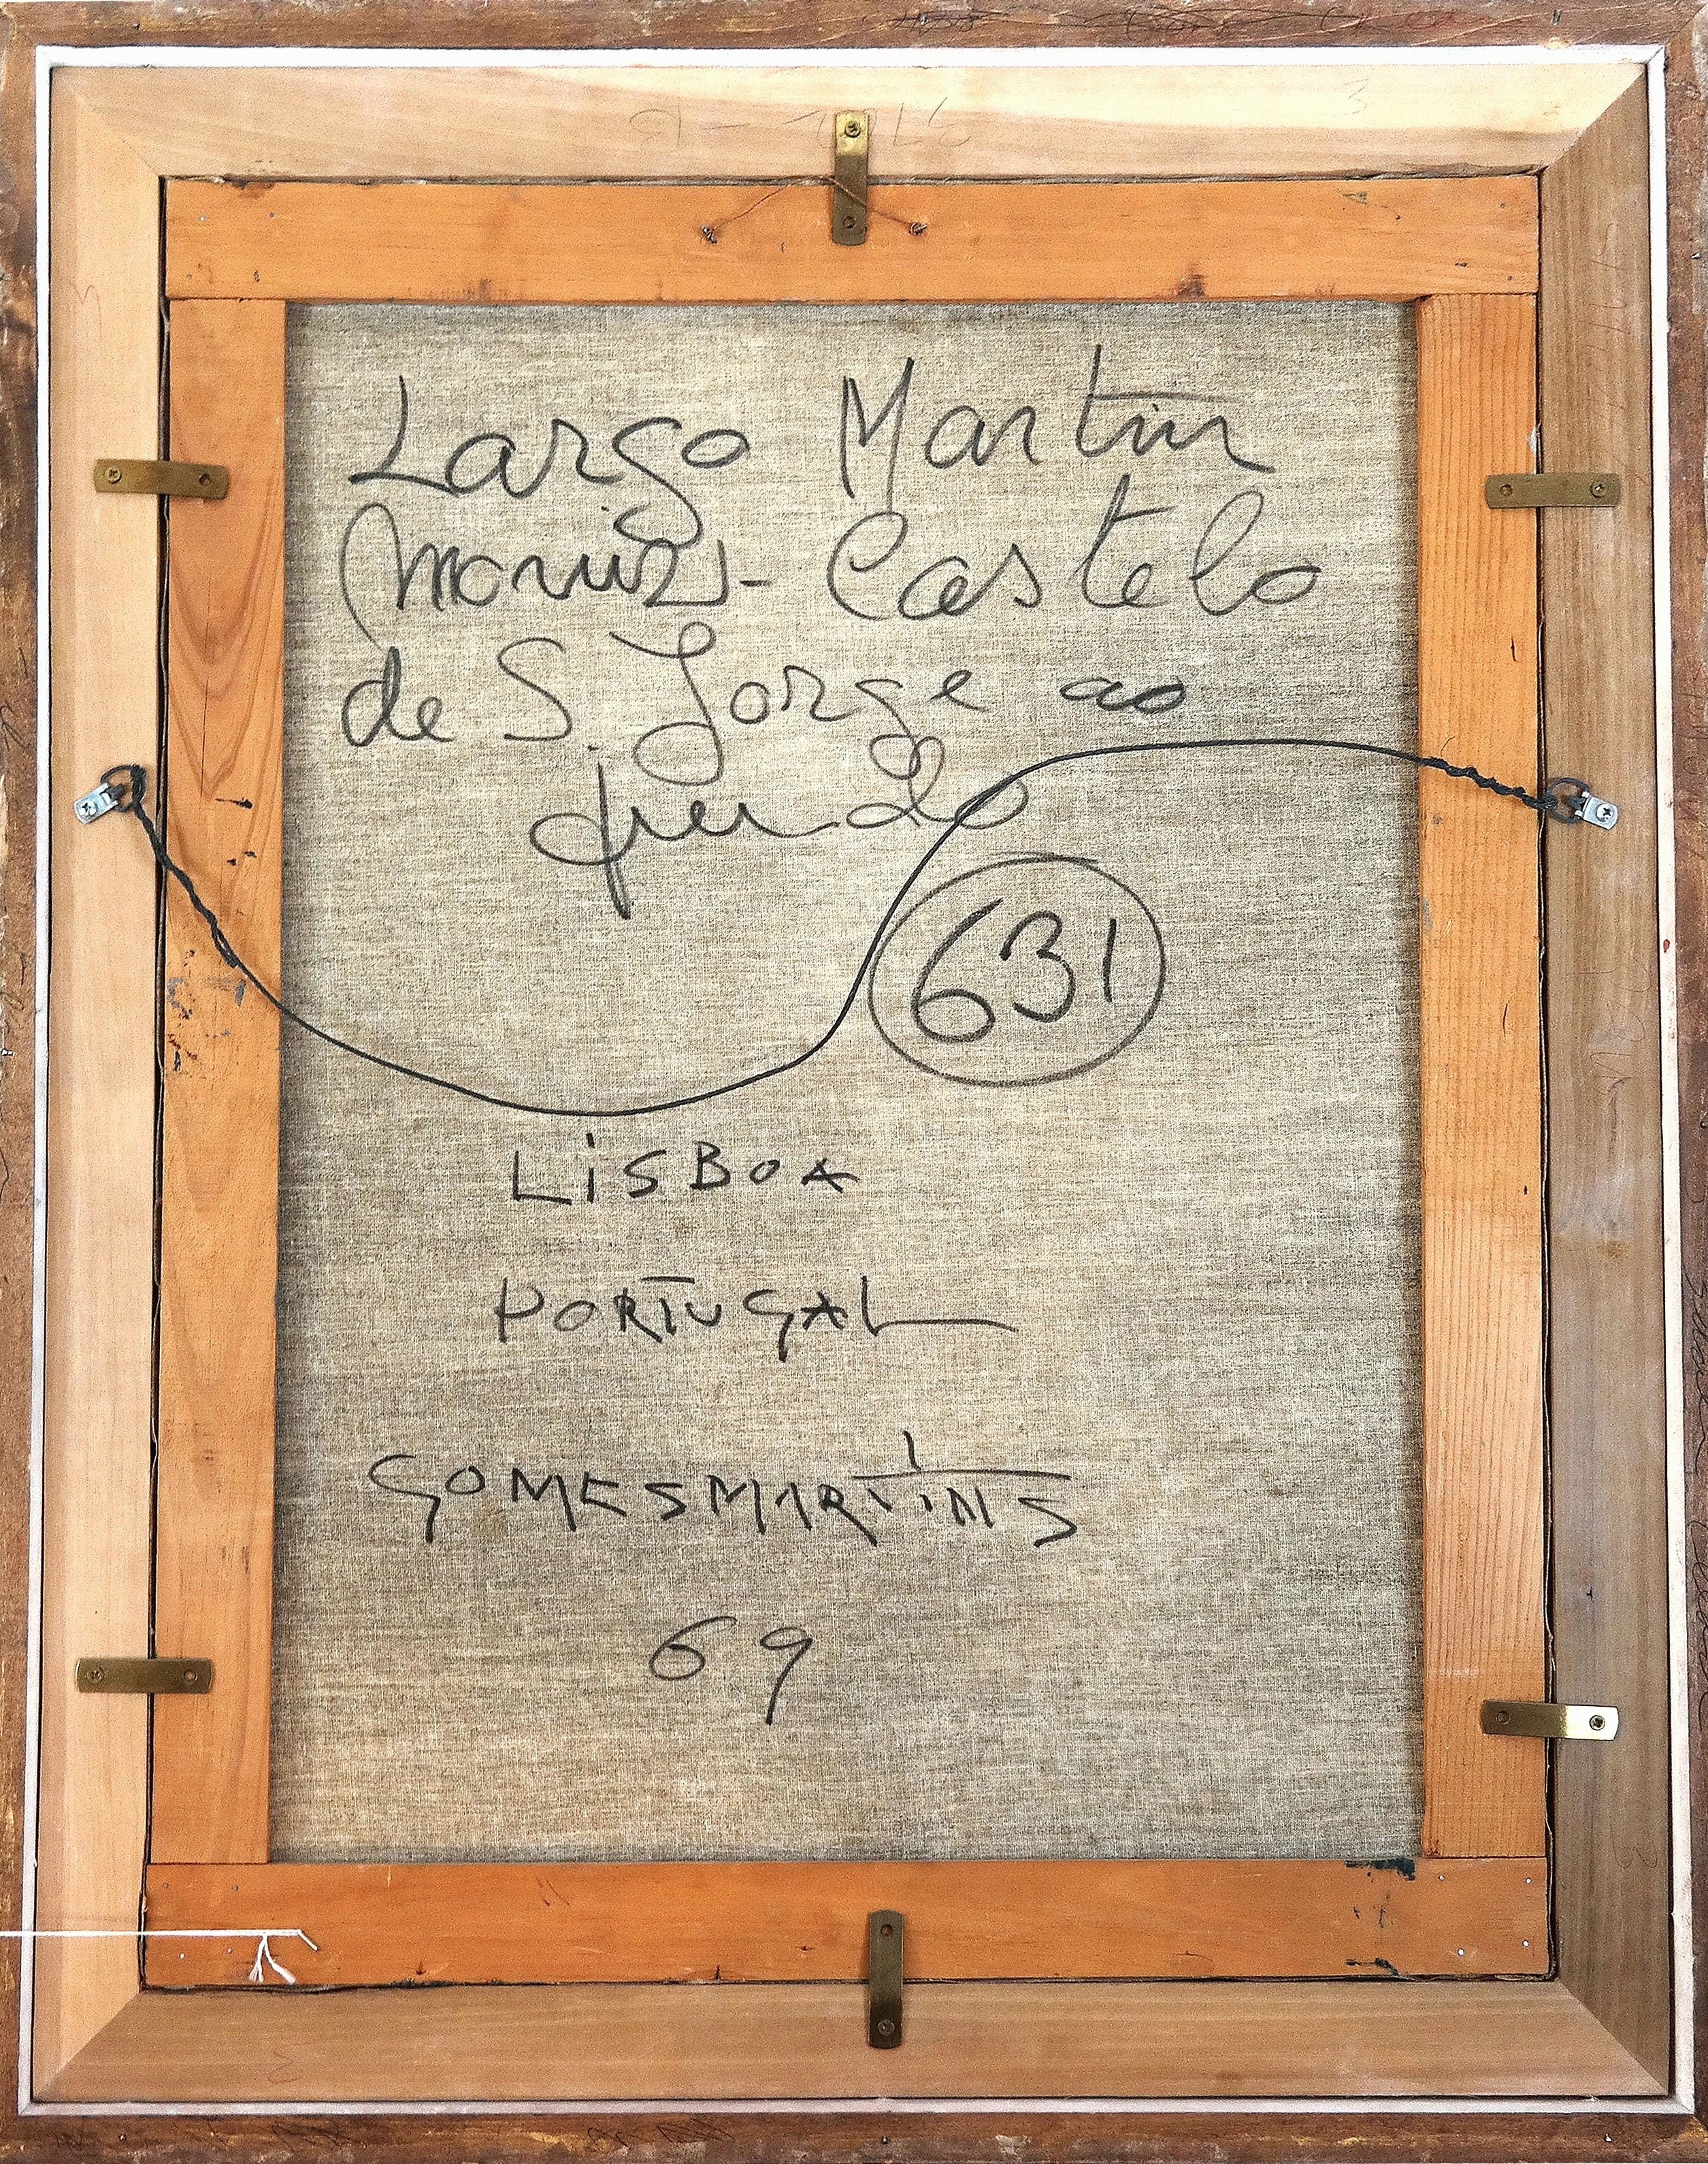 Largo Martim
Moniz - Castelo
de S. Jorge ao
fundo
631
LiSBOA
PORTUGAL
GOMESMARTiNS
69